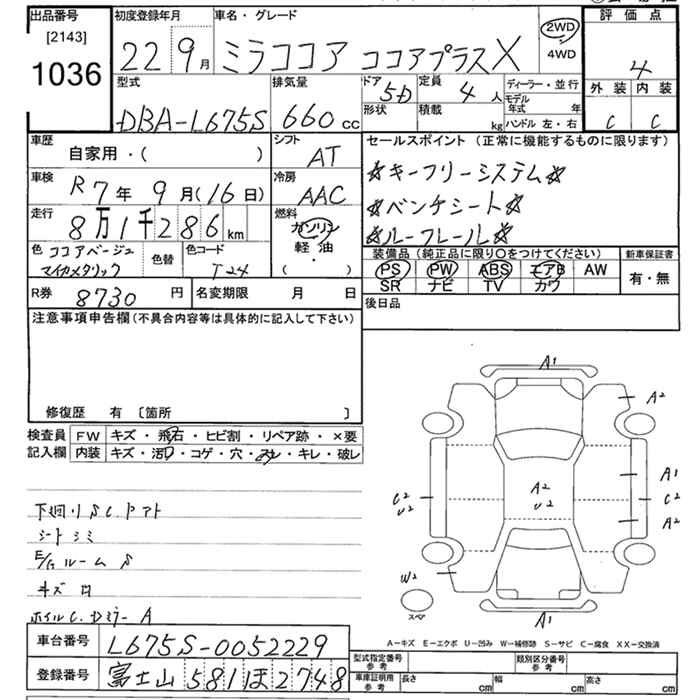 出品番号
[2143]
1036
初度登録年月
22 9月
車名・グレード
ミラココア ココアプラスX
2WD
4WD
評価点
4
外装 内装
C C
型式
DBA-L675S
排気量
660 cc
ドア
5D
定員
4 人
形状
積載
kg
ディーラー・並行
モデル年式 年
ハンドル 左・右
車歴
自家用・( )
シフト
AT
車検
R7年 9月(16日)
冷房
AAC
走行
8万1千286 km
燃料
ガソリン
軽油
( ・ )
色 ココアベージュ
マイカメタリック
色替
色コード
T24
R券 8730 円
名変期限 月 日
セールスポイント (正常に機能するものに限ります)
☆キーフリーシステム☆
☆ベンチシート☆
☆ルーフレール☆
装備品 (純正品に限り○をつけてください)
PS PW ABS エアB AW
SR ナビ TV カワ
新車保証書
有・無
後日品
注意事項申告欄(不具合内容等は具体的に記入して下さい)
修復歴 有 〔箇所 〕
検査員
記入欄
FW キズ・飛石・ヒビ割・リペア跡・×要
内装 キズ・汚レ・コゲ・穴・スレ・キレ・破レ
下廻り S C.Pアト
シートシミ
E/gルーム S
キズ 凹
ホイルC. Dミラー A
A1
A2
A1
C2
A2
A2
U2
C2
U2
W2
スペア
A1
A-キズ E-エクボ U-凹み W-補修跡 S-サビ C-腐食 XX-交換済
車台番号 L675S-0052229
登録番号 富士山 581 ほ 2748
型式指定番号 参考
類別区分番号 参考
車庫証明用 参考
長さ cm
幅 cm
高さ cm